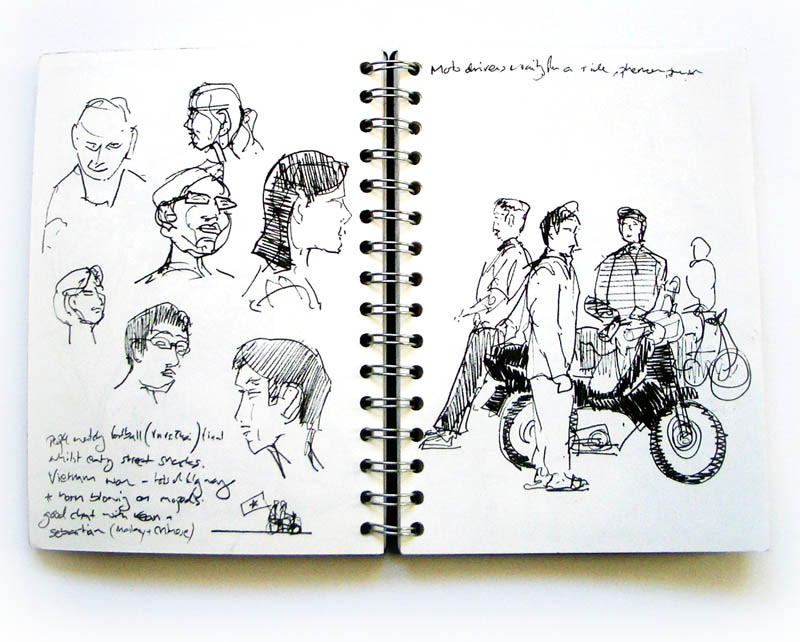 watching football (Vn vs Thai) final
whilst eating street snacks.
Vietnam won - lots of flag waving
+ horn blowing on mopeds.
good chat with +
sebastian (Malay + Chinese)
Moto drivers waiting for a ride,